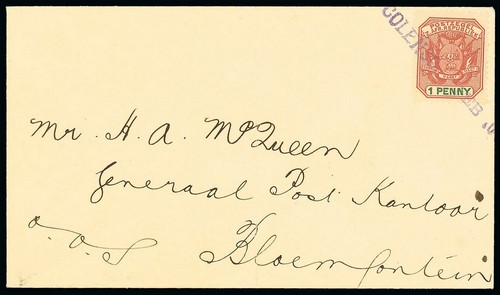 POSTZEGEL
Z. AFR. REPUBLIEK
1 PENNY
Mr. H. A. McQueen
Generaal Post Kantoor
o.v.s
Bloemfontein